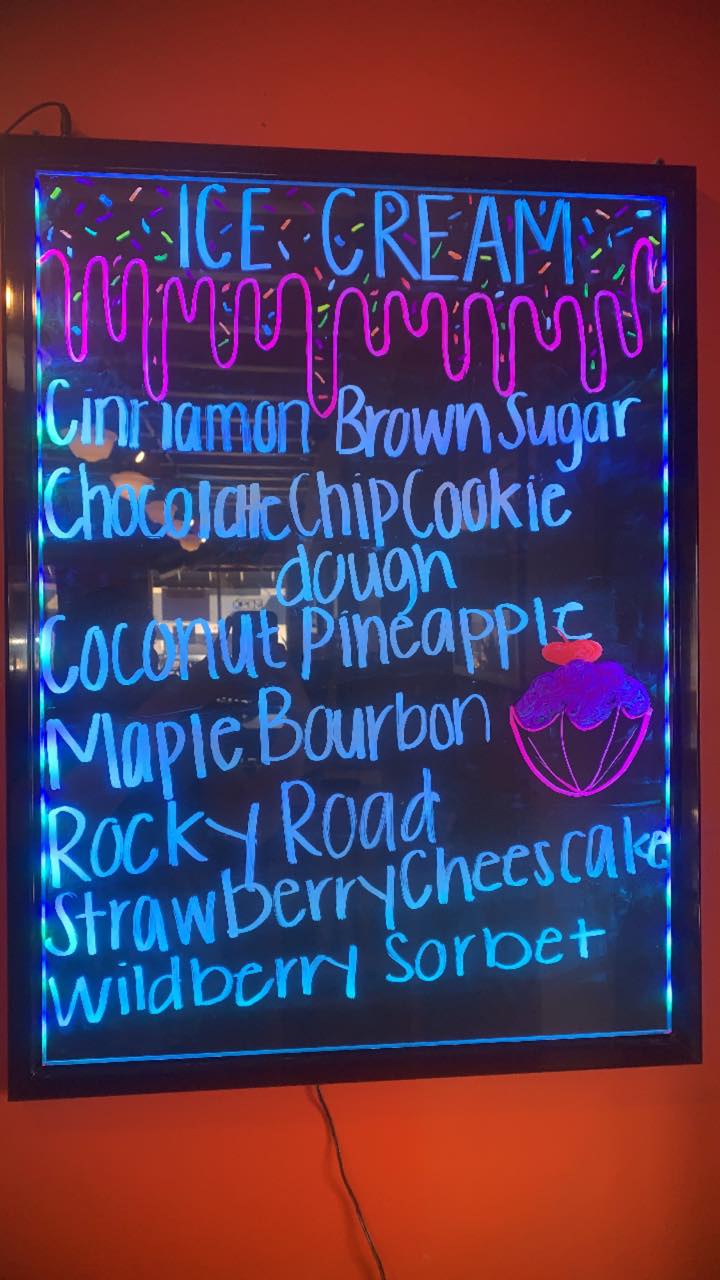 ICE CREAM
Cinnamon Brown Sugar
Chocolate Chip Cookie
dough
Coconut Pineapple
Maple Bourbon
Rocky Road
Strawberry Cheescake
Wildberry Sorbet
OPEN